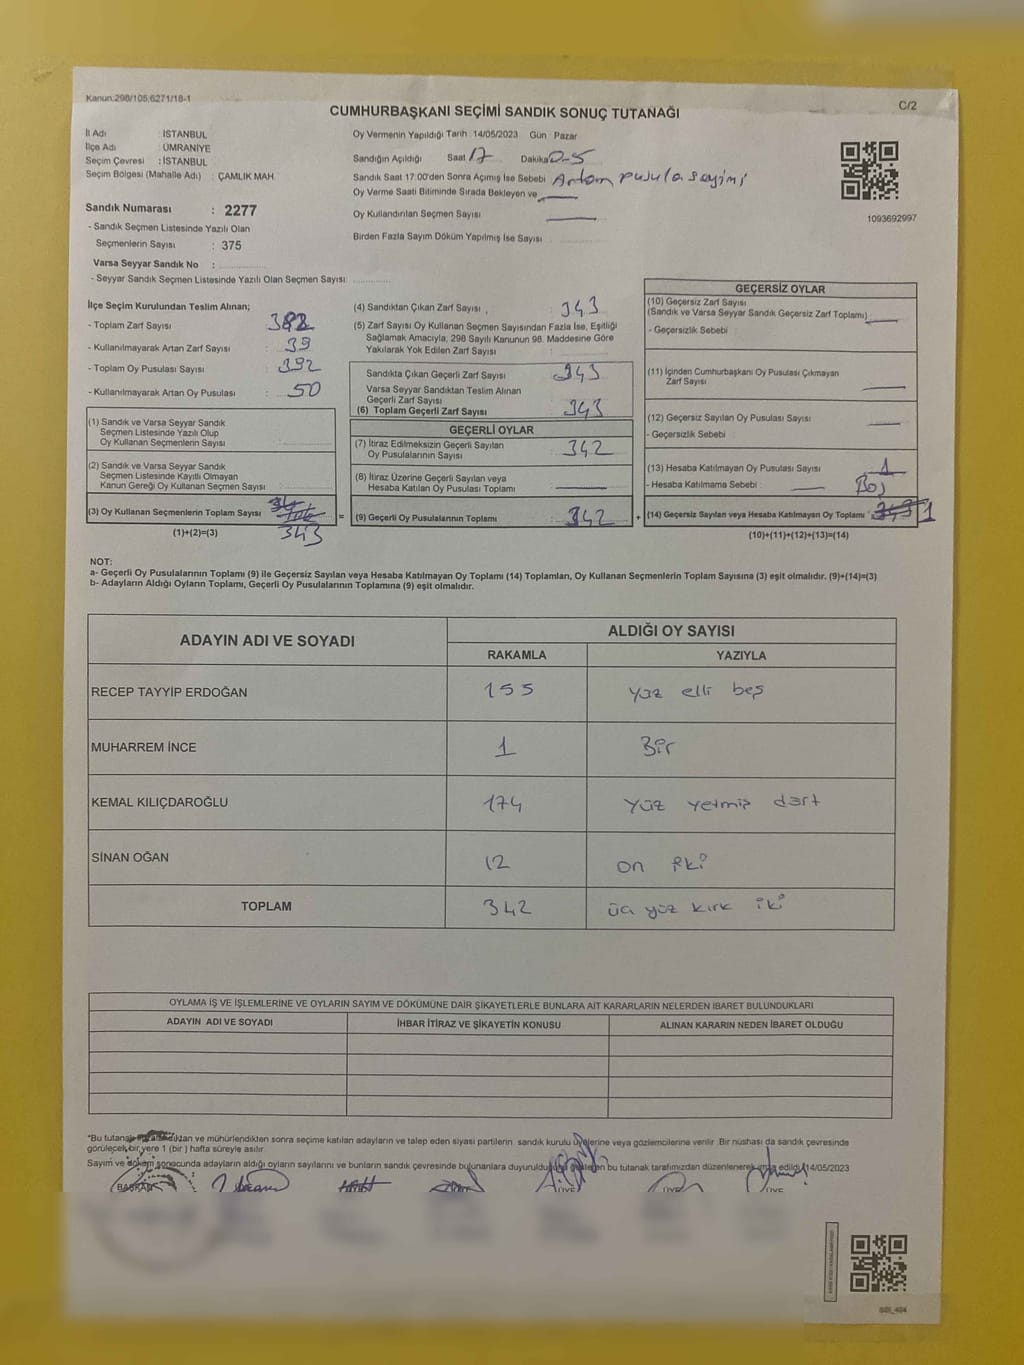 Kanun:298/105,6271/18-1
C/2
CUMHURBAŞKANI SEÇİMİ SANDIK SONUÇ TUTANAĞI
İl Adı : İSTANBUL
İlçe Adı : ÜMRANİYE
Seçim Çevresi : İSTANBUL
Seçim Bölgesi (Mahalle Adı) : ÇAMLIK MAH.
Sandık Numarası : 2277
- Sandık Seçmen Listesinde Yazılı Olan
Seçmenlerin Sayısı : 375
Varsa Seyyar Sandık No :
- Seyyar Sandık Seçmen Listesinde Yazılı Olan Seçmen Sayısı:
Oy Vermenin Yapıldığı Tarih : 14/05/2023 Gün : Pazar
Sandığın Açıldığı Saat 17 Dakika 0-5
Sandık Saat 17:00'den Sonra Açımış İse Sebebi Artan pusula sayimi
Oy Verme Saati Bitiminde Sırada Bekleyen ve
Oy Kullandırılan Seçmen Sayısı
Birden Fazla Sayım Döküm Yapılmış İse Sayısı :
1093692997
İlçe Seçim Kurulundan Teslim Alınan;
- Toplam Zarf Sayısı : 382
- Kullanılmayarak Artan Zarf Sayısı : 39
- Toplam Oy Pusulası Sayısı : 392
- Kullanılmayarak Artan Oy Pusulası : 50
(1) Sandık ve Varsa Seyyar Sandık
Seçmen Listesinde Yazılı Olup
Oy Kullanan Seçmenlerin Sayısı :
(2) Sandık ve Varsa Seyyar Sandık
Seçmen Listesinde Kayıtlı Olmayan
Kanun Gereği Oy Kullanan Seçmen Sayısı :
(3) Oy Kullanan Seçmenlerin Toplam Sayısı
343
(1)+(2)=(3)
(4) Sandıktan Çıkan Zarf Sayısı : 343
(5) Zarf Sayısı Oy Kullanan Seçmen Sayısından Fazla İse, Eşitliği
Sağlamak Amacıyla, 298 Sayılı Kanunun 98. Maddesine Göre
Yakılarak Yok Edilen Zarf Sayısı :
Sandıkta Çıkan Geçerli Zarf Sayısı : 343
Varsa Seyyar Sandıktan Teslim Alınan
Geçerli Zarf Sayısı :
(6) Toplam Geçerli Zarf Sayısı : 343
GEÇERLİ OYLAR
(7) İtiraz Edilmeksizin Geçerli Sayılan
Oy Pusulalarının Sayısı : 342
(8) İtiraz Üzerine Geçerli Sayılan veya
Hesaba Katılan Oy Pusulası Toplamı :
= (9) Geçerli Oy Pusulalarının Toplamı : 342 +
GEÇERSİZ OYLAR
(10) Geçersiz Zarf Sayısı
(Sandık ve Varsa Seyyar Sandık Geçersiz Zarf Toplamı)
- Geçersizlik Sebebi :
(11) İçinden Cumhurbaşkanı Oy Pusulası Çıkmayan
Zarf Sayısı
(12) Geçersiz Sayılan Oy Pusulası Sayısı
- Geçersizlik Sebebi :
(13) Hesaba Katılmayan Oy Pusulası Sayısı : 1
- Hesaba Katılmama Sebebi : Boş
(14) Geçersiz Sayılan veya Hesaba Katılmayan Oy Toplamı : 1
(10)+(11)+(12)+(13)=(14)
NOT:
a- Geçerli Oy Pusulalarının Toplamı (9) ile Geçersiz Sayılan veya Hesaba Katılmayan Oy Toplamı (14) Toplamları, Oy Kullanan Seçmenlerin Toplam Sayısına (3) eşit olmalıdır. (9)+(14)=(3)
b- Adayların Aldığı Oyların Toplamı, Geçerli Oy Pusulalarının Toplamına (9) eşit olmalıdır.
ADAYIN ADI VE SOYADI
ALDIĞI OY SAYISI
RAKAMLA YAZIYLA
RECEP TAYYİP ERDOĞAN 155 yüz elli beş
MUHARREM İNCE 1 Bir
KEMAL KILIÇDAROĞLU 174 yüz yetmiş dört
SİNAN OĞAN 12 on iki
TOPLAM 342 üç yüz kırk iki
OYLAMA İŞ VE İŞLEMLERİNE VE OYLARIN SAYIM VE DÖKÜMÜNE DAİR ŞİKAYETLERLE BUNLARA AİT KARARLARIN NELERDEN İBARET BULUNDUKLARI
ADAYIN ADI VE SOYADI İHBAR İTİRAZ VE ŞİKAYETİN KONUSU ALINAN KARARIN NEDEN İBARET OLDUĞU
*Bu tutanak ve mühürlendikten sonra seçime katılan adayların ve talep eden siyasi partilerin, sandık kurulu üyelerine veya gözlemcilerine verilir. Bir nüshası da sandık çevresinde
görülecek bir yere 1 (bir) hafta süreyle asılır.
Sayım ve döküm sonucunda adayların aldığı oyların sayılarını ve bunların sandık çevresinde bulunanlara duyurulduğunu bu tutanak tarafımızdan düzenlenerek imza edildi. 14/05/2023
BAŞKAN ÜYE ÜYE ÜYE